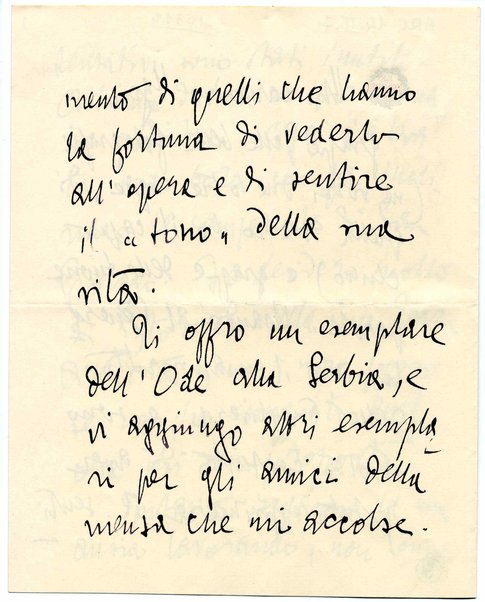 mento di quelli che hanno
la fortuna di vederlo
all'opera e di sentire
il «tono» della sua
vita.
Ti offro un esemplare
dell'Ode alla Serbia, e
vi aggiungo altri esempla-
ri per gli amici della
mensa che mi accolse.